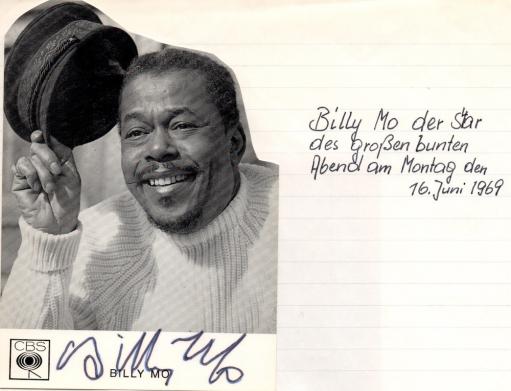 Billy Mo der Star
des großen bunten
Abend am Montag den
16. Juni 1969
CBS
Billy Mo
BILLY MO